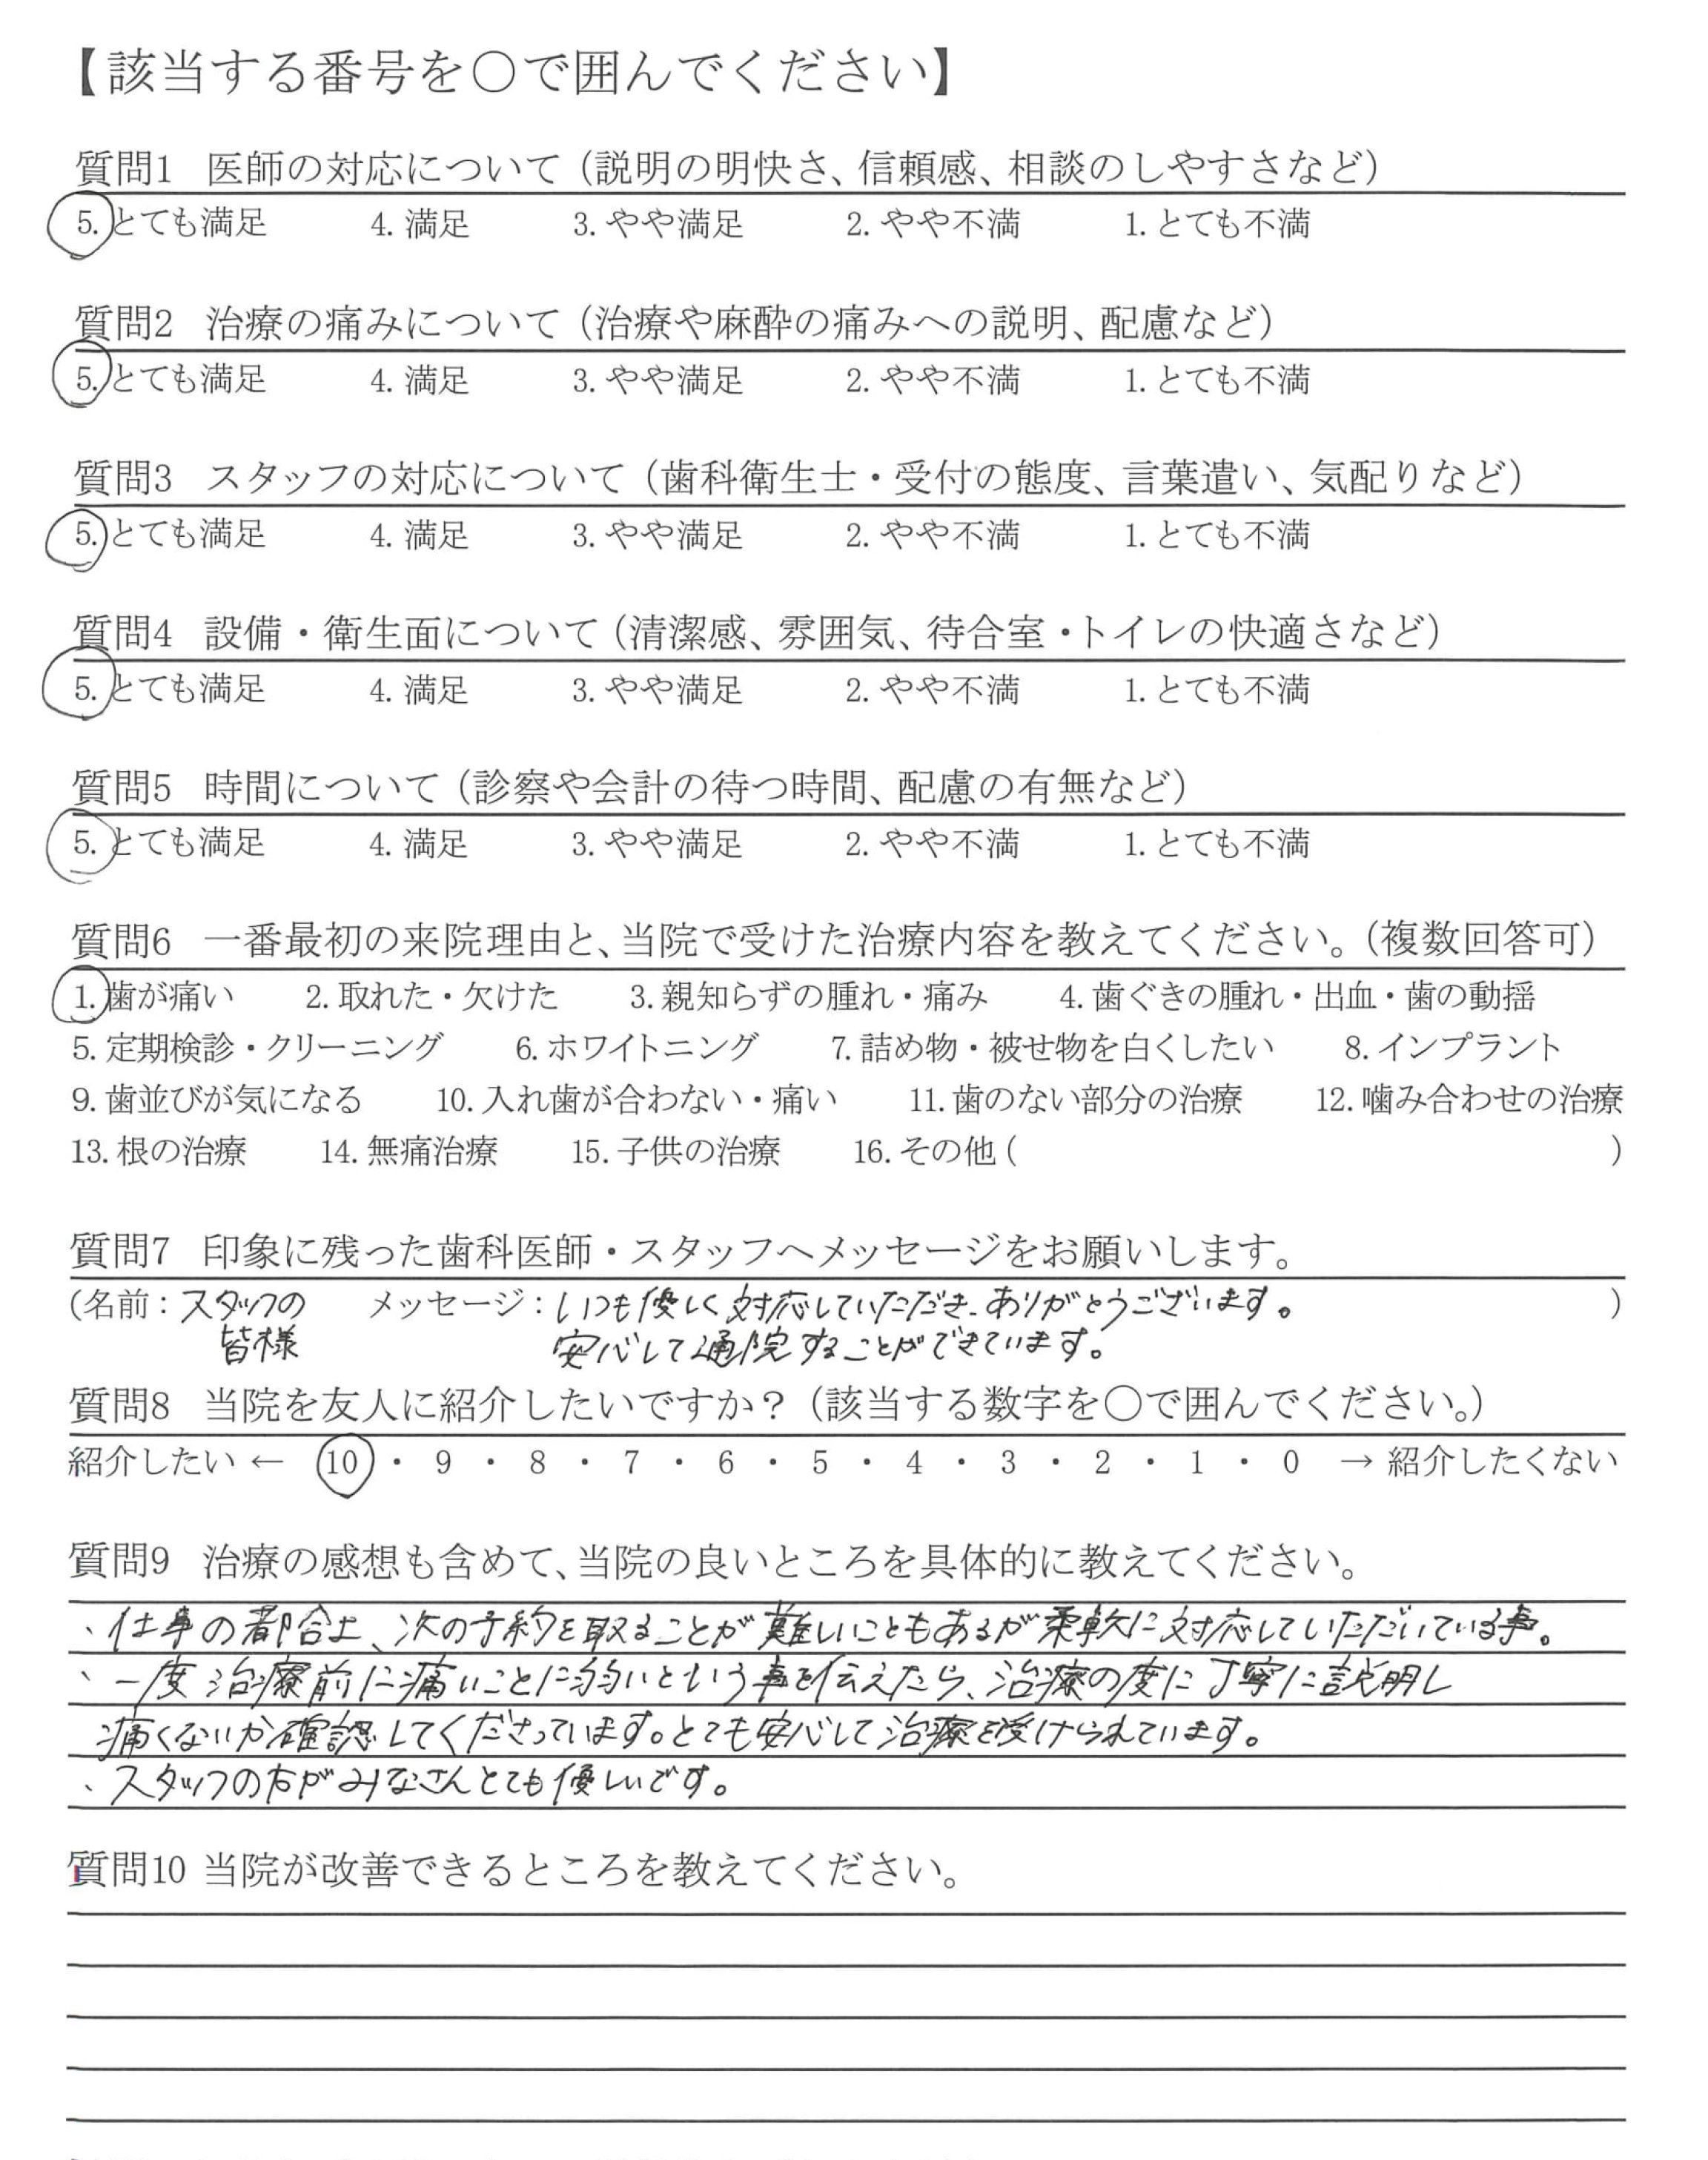 【該当する番号を○で囲んでください】
質問1 医師の対応について（説明の明快さ、信頼感、相談のしやすさなど）
5. とても満足 4. 満足 3. やや満足 2. やや不満 1. とても不満
質問2 治療の痛みについて（治療や麻酔の痛みへの説明、配慮など）
5. とても満足 4. 満足 3. やや満足 2. やや不満 1. とても不満
質問3 スタッフの対応について（歯科衛生士・受付の態度、言葉遣い、気配りなど）
5. とても満足 4. 満足 3. やや満足 2. やや不満 1. とても不満
質問4 設備・衛生面について（清潔感、雰囲気、待合室・トイレの快適さなど）
5. とても満足 4. 満足 3. やや満足 2. やや不満 1. とても不満
質問5 時間について（診察や会計の待つ時間、配慮の有無など）
5. とても満足 4. 満足 3. やや満足 2. やや不満 1. とても不満
質問6 一番最初の来院理由と、当院で受けた治療内容を教えてください。（複数回答可）
1. 歯が痛い 2. 取れた・欠けた 3. 親知らずの腫れ・痛み 4. 歯ぐきの腫れ・出血・歯の動揺
5. 定期検診・クリーニング 6. ホワイトニング 7. 詰め物・被せ物を白くしたい 8. インプラント
9. 歯並びが気になる 10. 入れ歯が合わない・痛い 11. 歯のない部分の治療 12. 噛み合わせの治療
13. 根の治療 14. 無痛治療 15. 子供の治療 16. その他 ( )
質問7 印象に残った歯科医師・スタッフへメッセージをお願いします。
（名前：スタッフの メッセージ：いつも優しく対応していただき、ありがとうございます。 ）
皆様 安心して通院することができています。
質問8 当院を友人に紹介したいですか？（該当する数字を○で囲んでください。）
紹介したい ← 10 ・ 9 ・ 8 ・ 7 ・ 6 ・ 5 ・ 4 ・ 3 ・ 2 ・ 1 ・ 0 → 紹介したくない
質問9 治療の感想も含めて、当院の良いところを具体的に教えてください。
、仕事の都合上、次の予約を取ることが難しいこともあるが柔軟に対応していただいている事。
、一度治療前に痛いことに弱いという事を伝えたら、治療の度に丁寧に説明し
痛くないか確認してくださっています。とても安心して治療を受けられています。
、スタッフの方がみなさんとても優しいです。
質問10 当院が改善できるところを教えてください。